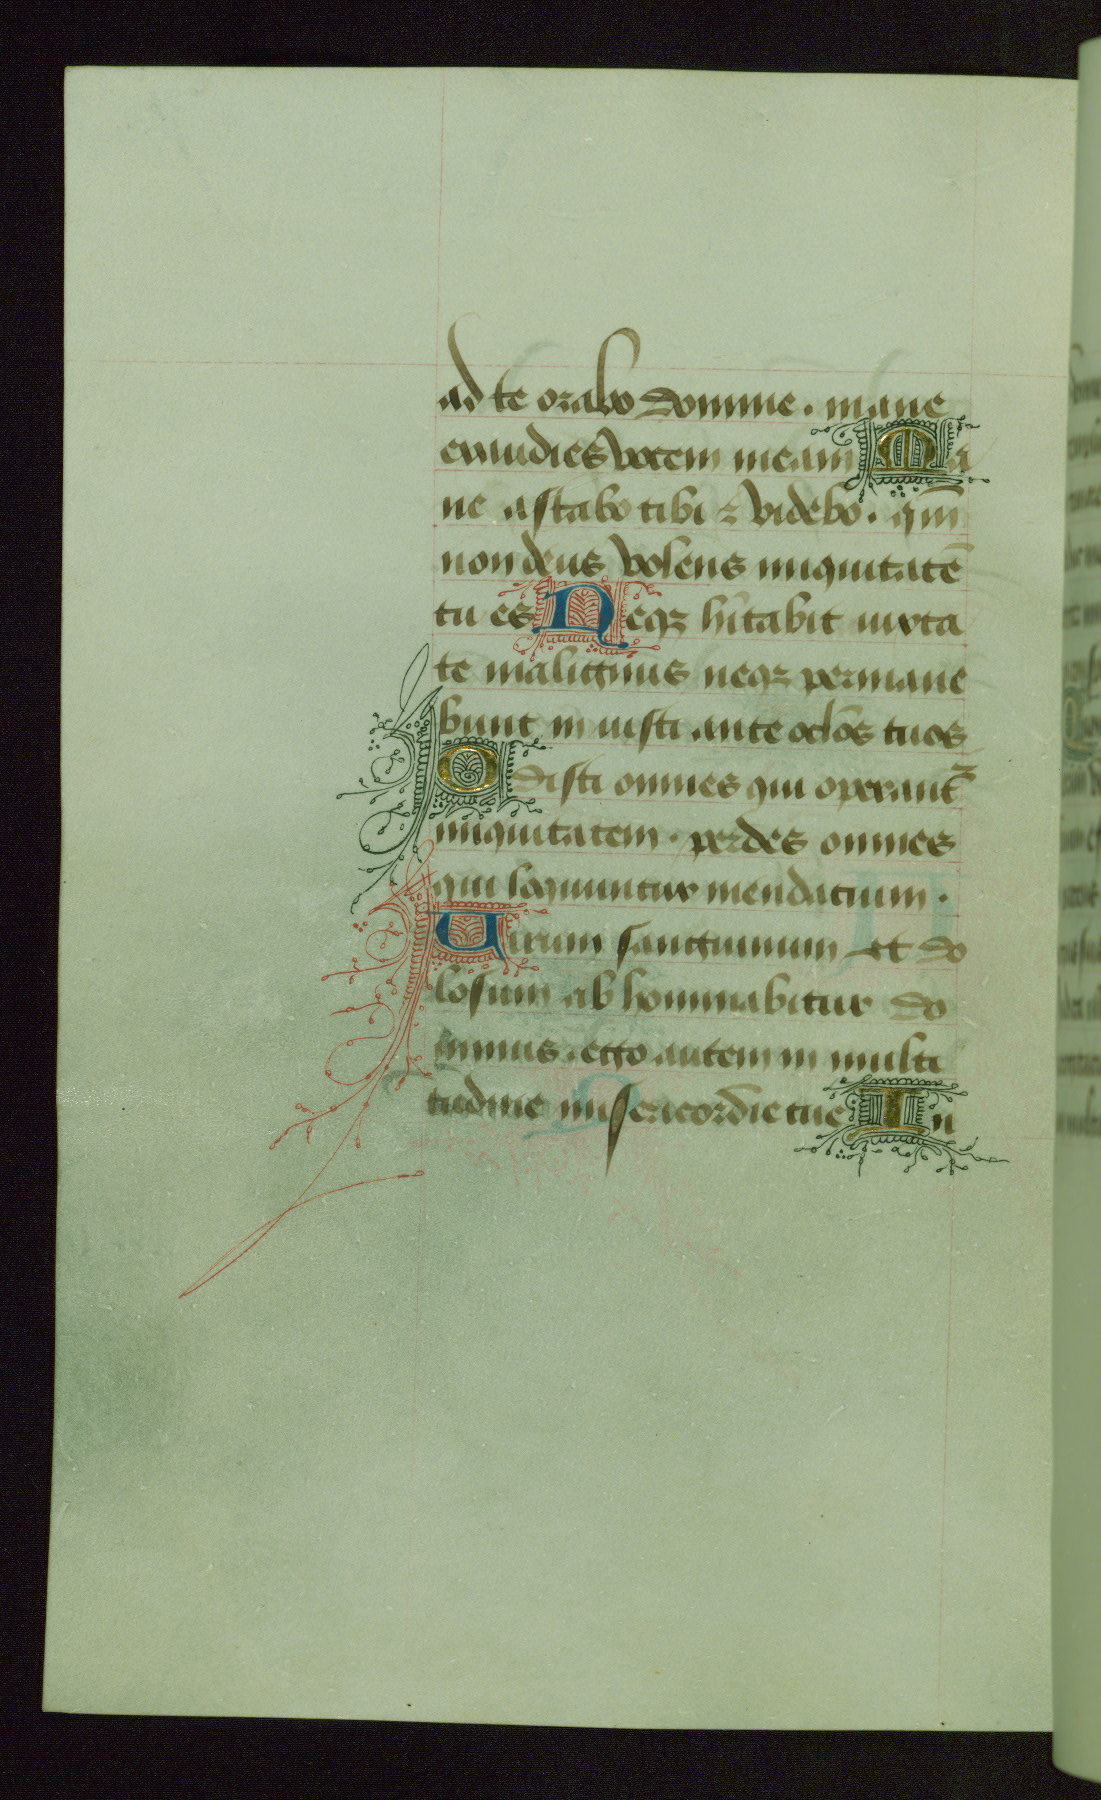 ad te orabo domine. mane
exaudies vocem meam Ma
ne astabo tibi ⁊ videbo. qm̄
non deus volens iniquitatē
tu es Neqꝫ hītabit iuxta
te malignus neqꝫ permane
bunt in iusti ante oclōs tuos
Odisti omnes qui operant᷑
iniquitatem. perdes omnes
qui loquuntur mendacium.
Uirum sanguinum et do
losum ab hominabitur do
minus. ego autem in multi
tudine misericordie tue In